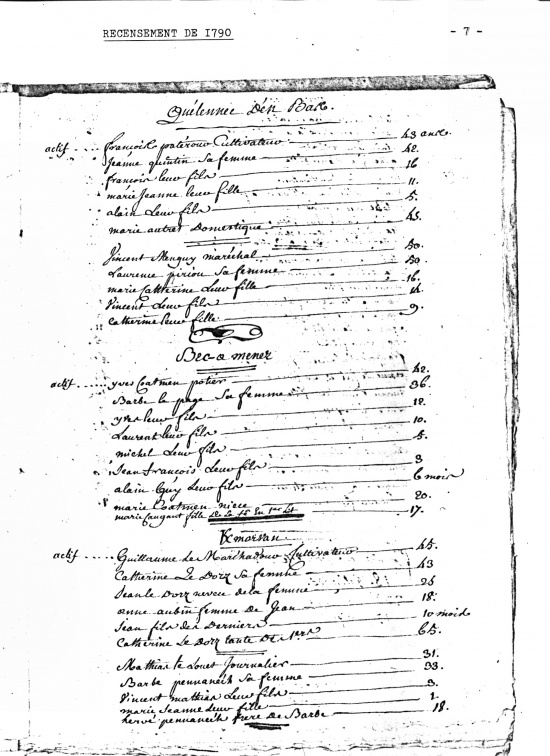 RECENSEMENT DE I790
- 7 -
Quélennec Den Bars.
actif françois patérour Cultivateur 43 ans.
Jeanne quintin Sa femme 42.
françois leur fils 16
marie Jeanne leur fille 11.
alain Leur fils 5.
marie autret Domestique 45.
Vincent Menguy maréchal 50.
Laurence piriou Sa femme 50.
marie Catherine Leur fille 16.
Vincent Leur fils 14.
Catherine leur fille 9.
Bec a menez
actif yves Coatmen potier 42.
Barbe le page Sa femme 36.
yves leur fils 12.
Laurent leur fils 10.
michel Leur fils 5.
Jean francois Leur fils 3
alain Guy Leur fils 6 mois
marie Coatmen niece 20.
marie fille De La fe En 1er Lit 17.
K morvan
actif Guillaume Le Marchadour Cultivateur 45.
Catherine Le Dozz Sa femme 43
Jean le Dozz neveu de la femme 25
anne aubin femme de Jean 18.
Jean fils des Derniers 10 mois
Catherine Le Dozz tante De 65.
Mathias le Louet Journalier 31.
Barbe pennaneich Sa femme 33.
Vincent mathias Leur fils 3.
marie Jeanne Leur fille 1.
hervé pennaneich frere de Barbe 18.